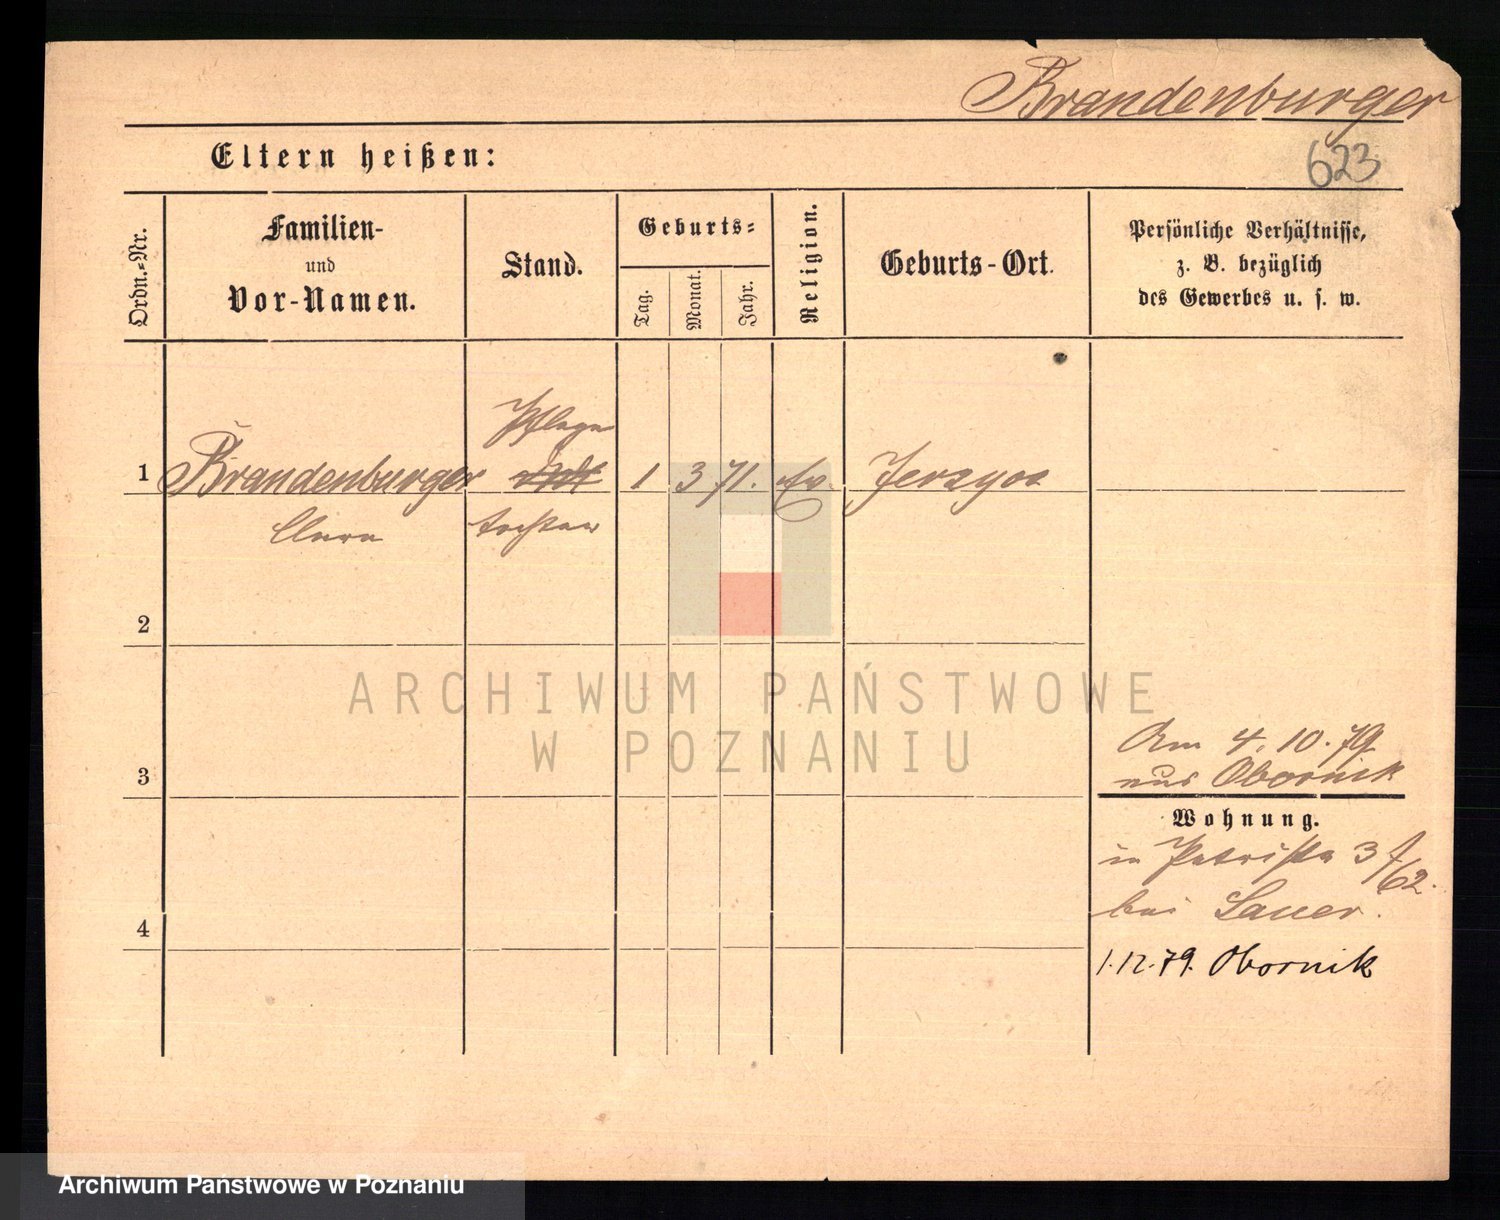 Brandenburger
623
Eltern heißen:
Ordn.-Nr.
Familien-
und
Vor-Namen.
Stand.
Geburts-
Tag.
Monat.
Jahr.
Religion.
Geburts-Ort.
Persönliche Verhältnisse,
z. B. bezüglich
des Gewerbes u. s. w.
Pflege
1 Brandenburger 1 3 71. Ev. Jerzyce
Clara tochter
2
3
4
Am 4. 10. 79
aus Obornik
Wohnung.
in Petristr 3
62.
bei Sauer.
1.12.79. Obornik
ARCHIWUM PAŃSTWOWE
W POZNANIU
Archiwum Państwowe w Poznaniu